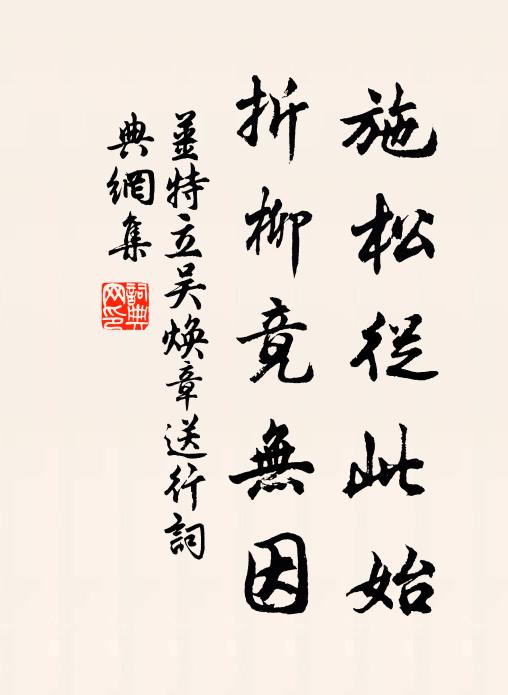 施松從此始
折柳竟無因
姜特立吴焕章送行詞
典網集
詞典网印